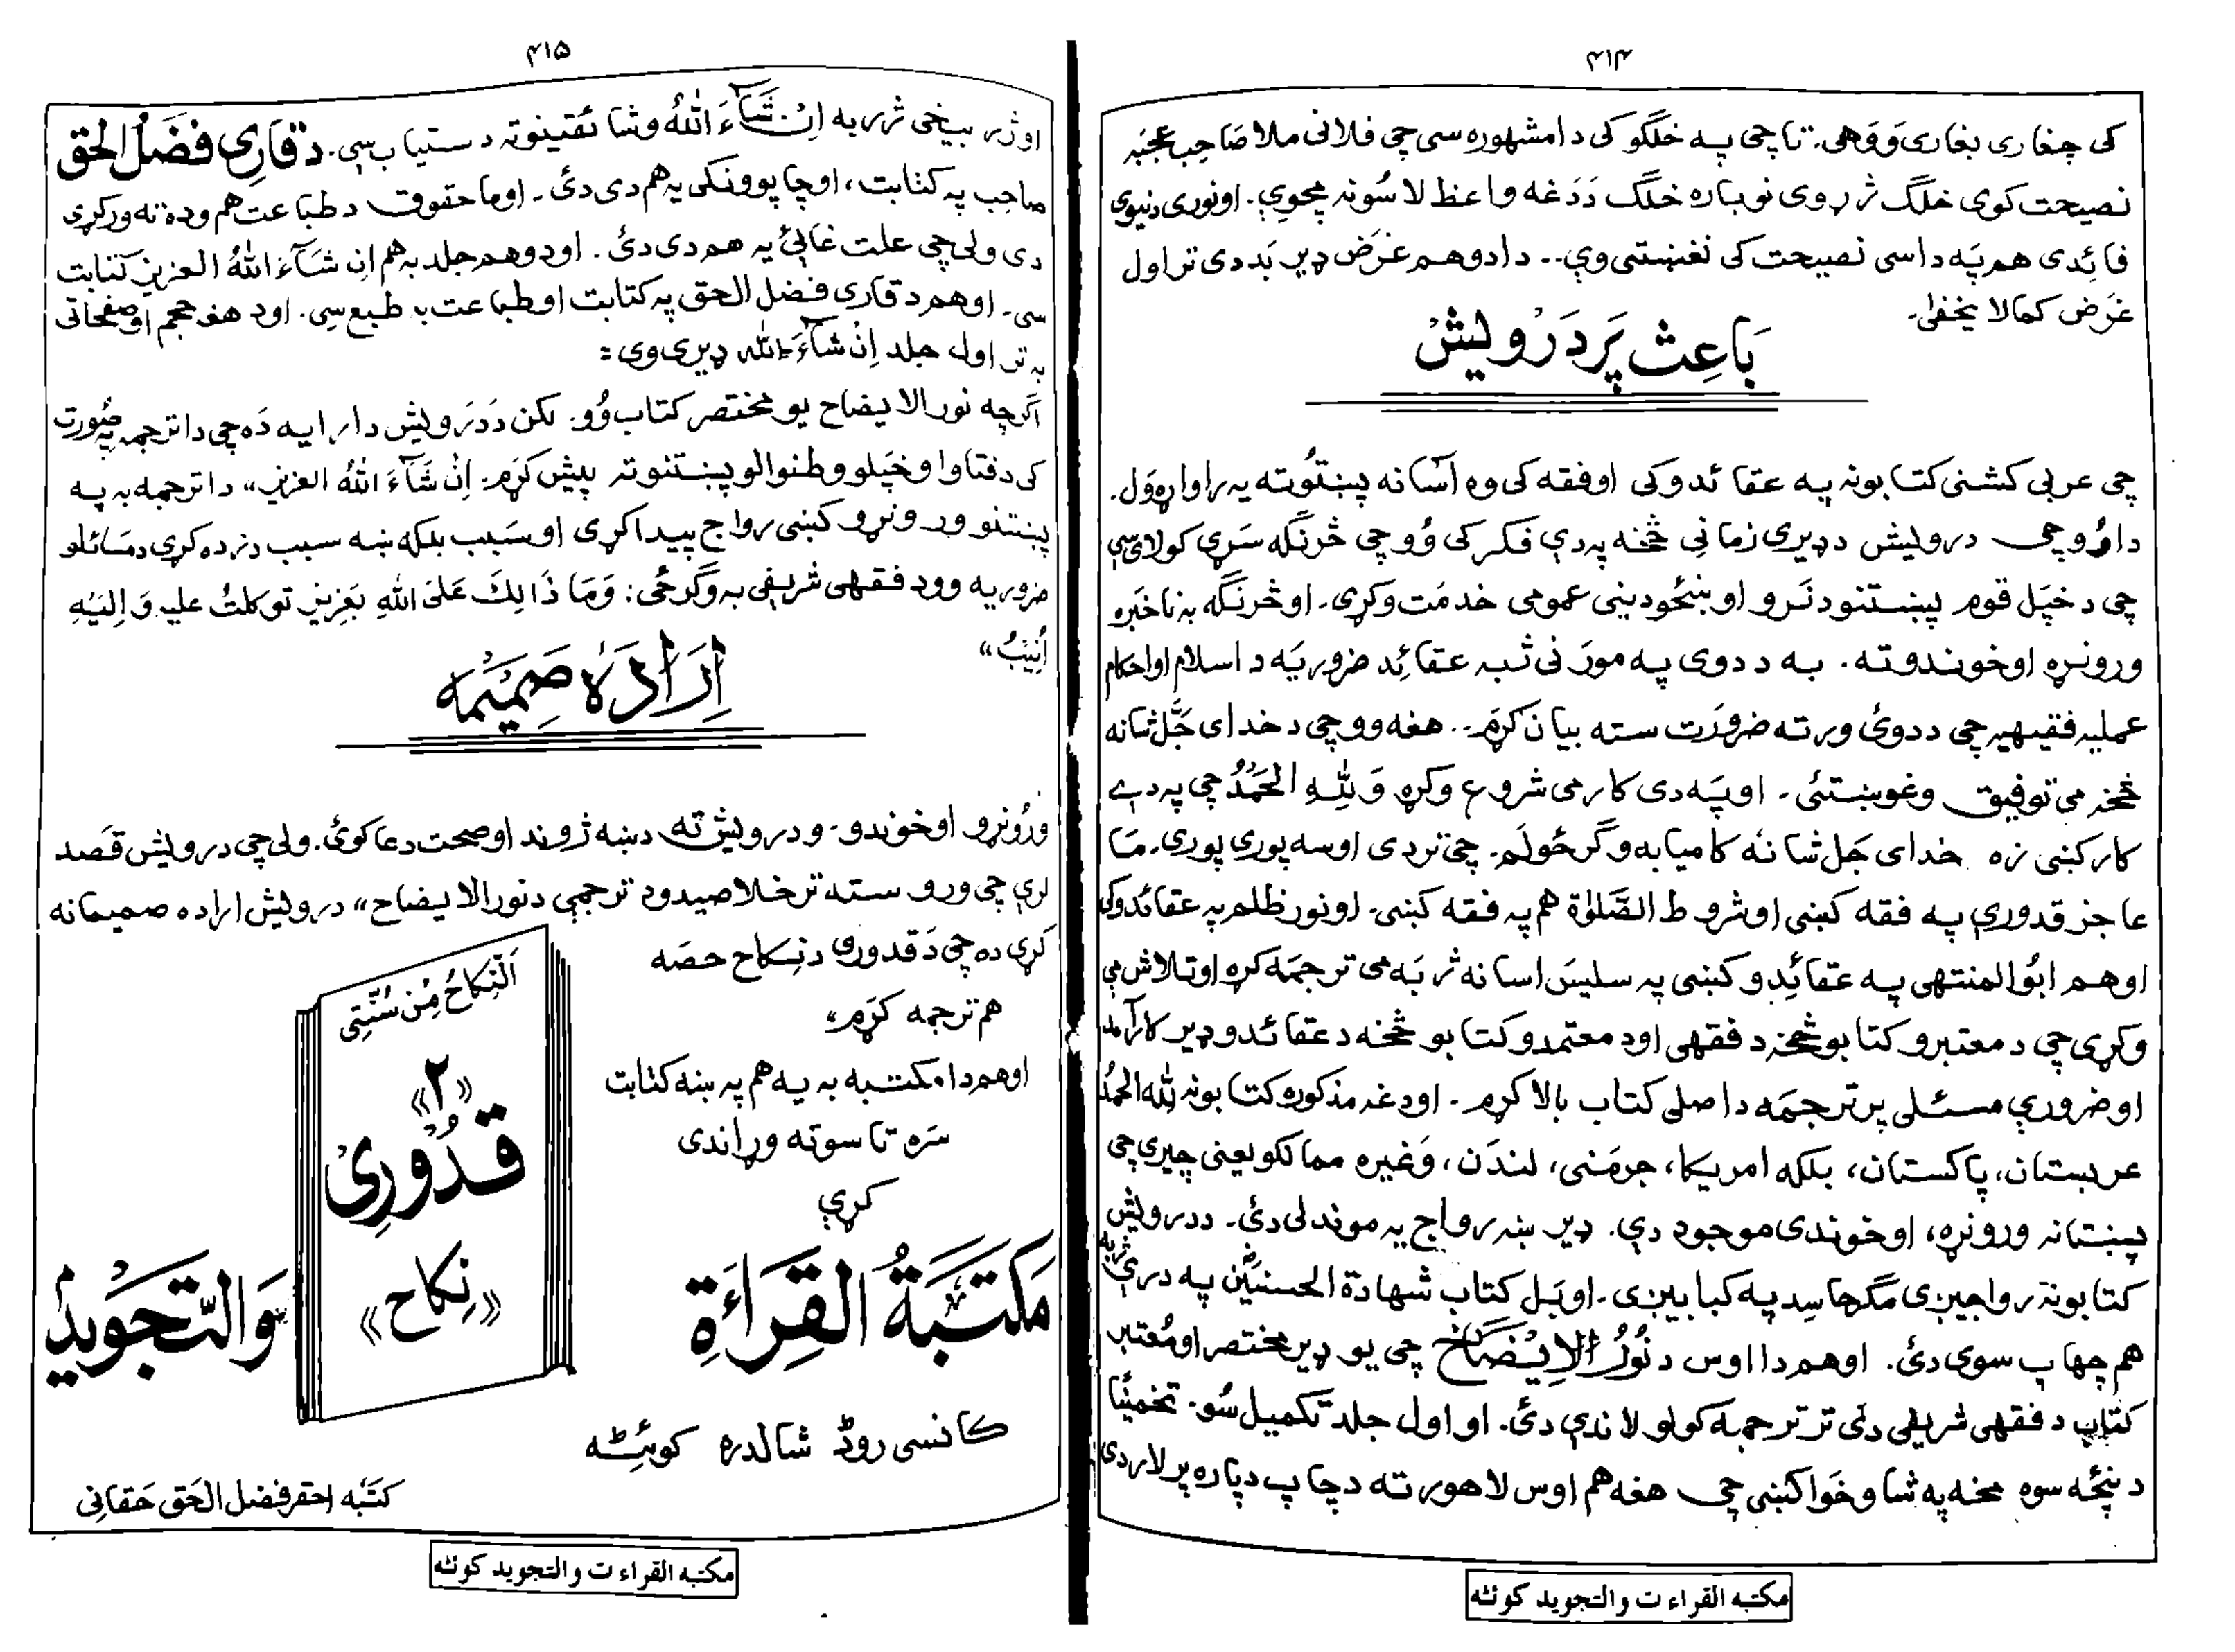 ۴۱۴
کی چغاری بغاری وَوَهی. تاچی په خلګو کی دا مشهوره سی چی فلانی ملا صَاحِب عجبَه
نصیحت کوی خلګ ژړوی نو بیا ره خلګ دَدَغه واعظ لاسُونه مچوي. او نوری دنیوی
فائدی هم په داسی نصیحت کی نغښتی وي.. دا دوهم غَرَض ډیر بَد دی تر اول
غَرَض کمالا یخفیٰ.
بَاعِث پَر دَرْوِیش
چی عربی کشنی کتابونه په عقائدو کی او فقه کی وه آسانه پښتُوته یه راواړوَل.
داوُو چی درویش د ډیری زمانې څخه په دې فکر کی وُو چی څرنګه سَړی کولای سی
چی د خپَل قوم پښتنو د نَرو او ښځو دینی عمومی خدمَت وکړی. او څرنګه به ناخبَره
وروڼړه او خوندوته. به د دوی په مورَنی ژبه عقائِد ضروریَه د اسلام او احکام
عملیه فقیهیه چی د دویٔ ورته ضرورَت سته بیان کړَم.. هغه وو چی د خدای جَلّ شانه
څخه می توفیق وغوښتئ. او پَه دی کار می شروع وکړه وَلِلّٰهِ الْحَمْدُ چی په دې
کار کښی زه خدای جَل شانه کامیابه وګرځولَم. چی تر دی اوسه پوری پوری. مَا
عاجز قدوري په فقه کښی او شروط الصَّلوٰة هم په فقه کښی. او نور ظلم په عقائدو کی
او هم ابُو المنتهی په عقائِدو کښی په سلیسَ اسانه ژبَه می ترجمَه کړه او تلاش می
وکړی چی د معتبرو کتابو څخه د فقهی او د معتمدو کتابو څخه د عقائدو ډیر کارآمد
او ضروري مسئلی پر ترجمَه د اصلی کتاب بالا کړم. او دغه مذکوره کتابونه لله الحمدُ
عربستان، پاکستان، بلکه امریکا، جرمَنی، لندَن، وَغیره ممالکو یعنی چیری چی
پښتانه وروڼړه، او خوندی موجود دي. ډیر ښه رواج یه موندلی دئ. د درویش
کتابونه رواجیږی مګر حاسِد په کبابیږی. او بَل کتاب شهادة الحسنیَیْن په دری ژبه
هم چهاپ سوی دئ. او هم دا اوس د نُوْرُ الْاِیْضَاحْ چی یو ډیر مختصر او مُعتبر
کتاب د فقهی شریفی دئ تر ترجمه کولو لاندي دئ. او اول جلد تکمیل سُو. تخمینًا
د نپځه سوه مخه په شا و خَوا کښی چی هغه هم اوس لاهور ته د چاپ دپاره پر لار دی
مکتبه القراءت والتجوید کوئٹه
۴۱۵
او ژر بیخی ژر ریه اِنْ شَآءَ اللهُ وشائقینوته دستیاب سي. د قارِی فضَلُ الْحق
صاحب په کتابت، او چاپوونکی یه هم دی دئ. او ما حقوق د طباعت هم وده ته ورکړی
دی ولی چی علت غائی یه هم دی دئ. او دوهم جلد به هم اِن شَآءَ اللهُ العزیز کتابت
سی. او هم د قاری فضل الحق په کتابت او طباعت به طبع سِی. او د هغه حجم او صفحاتی
به تر اول جلد اِنْ شَآءَ الله ډیری وی =
اګرچه نور الایضاح یو مختصر کتاب وُو. لکن دَدَرَویش دا رایه دَه چی دا ترجمه په صُورت
کی د فتاوا وخپلو وطنوالو پښتنوته پیش کړَم. اِنْ شَآءَ اللهُ العزیز" دا ترجمه به په
پښتنو وروڼړو کښی رواج پیدا کړی او سَبَب بلکه ښه سبب د زده کړی د مسَائلو
ضروریه وو د فقهی شریفی به وګرځی: وَمَا ذَالِكَ عَلَی اللهِ بَعَزِیزٍ توکلتُ علیهِ وَ اِلَیْهِ
اُنِیْبُ"
اِرَادَهٔ صَمِیْمَه
وروُڼړو او خوندو. و درویش ته د ښه ژوند او صحت دعا کوئ. ولی چی درویش قصَد
لری چی ورو سته تر خلاصیدو د ترجمې د نور الایضاح" درویش اراده صمیمانه
کړی ده چی دَ قدوری د نِکاح حصَه
هم ترجمه کړَم،
او هم دا مکتبه به یه هم په ښه کتابت
سَره تاسوته وړاندی
کړي
اَلنِّکَاحُ مِنْ سُنَّتِی
«۲»
قدُوْرِیْ
«نِکاح»
مَکتَبَةُ القِرَاءَةِ وَالتَّجوِیْد
کانسی روڈ شالدره کوئټه
کتَبَه احقر فضل الحَق حَقانِی
مکتبه القراءت والتجوید کوئٹه